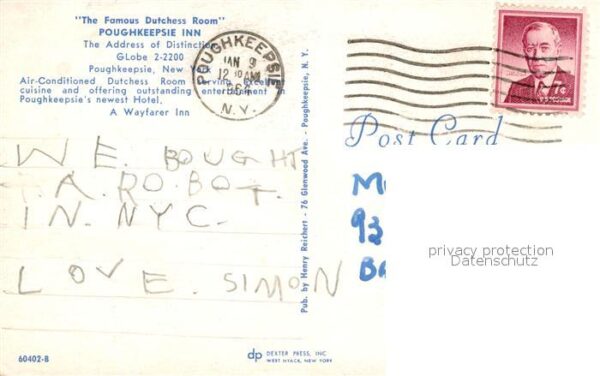 "The Famous Dutchess Room"
POUGHKEEPSIE INN
The Address of Distinction
GLobe 2-2200
Poughkeepsie, New York
Air-Conditioned Dutchess Room serving excellent
cuisine and offering outstanding entertainment in
Poughkeepsie's newest Hotel.
A Wayfarer Inn
POUGHKEEPSIE
JAN 9
12 30 AM
1964
N.Y.
7¢
Post Card
WE. BOUGHT
A. ROBOT.
IN. NYC.
LOVE. SIMON
Pub. by Henry Reichert - 76 Glenwood Ave. - Poughkeepsie, N. Y.
93
privacy protection
Datenschutz
60402-B
dp DEXTER PRESS, INC
WEST NYACK, NEW YORK